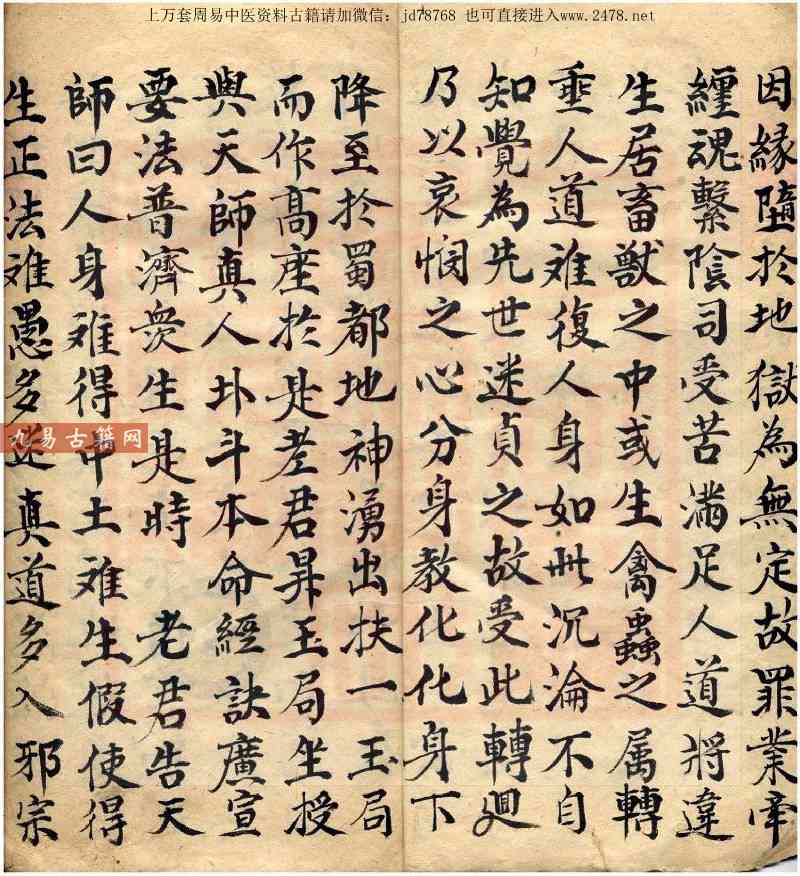 上万套周易中医资料古籍请加微信：jd78768 也可直接进入www.2478.net
因縁墮於地獄為無定故罪業牽
纏魂繫陰司受苦滿足人道將違
生居畜獸之中或生禽蟲之属轉
乖人道难復人身如此沉淪不自
知覺為先世迷貞之故受此轉廻
乃以哀憫之心分身教化化身下
降至於蜀都地神湧出扶一玉局
而作高座於是老君昇玉局坐授
與天師真人北斗本命經訣廣宣
要法普濟衆生是時 老君告天
師曰人身难得中土难生假使得
生正法难愚多迷真道多入邪宗
九易古籍网